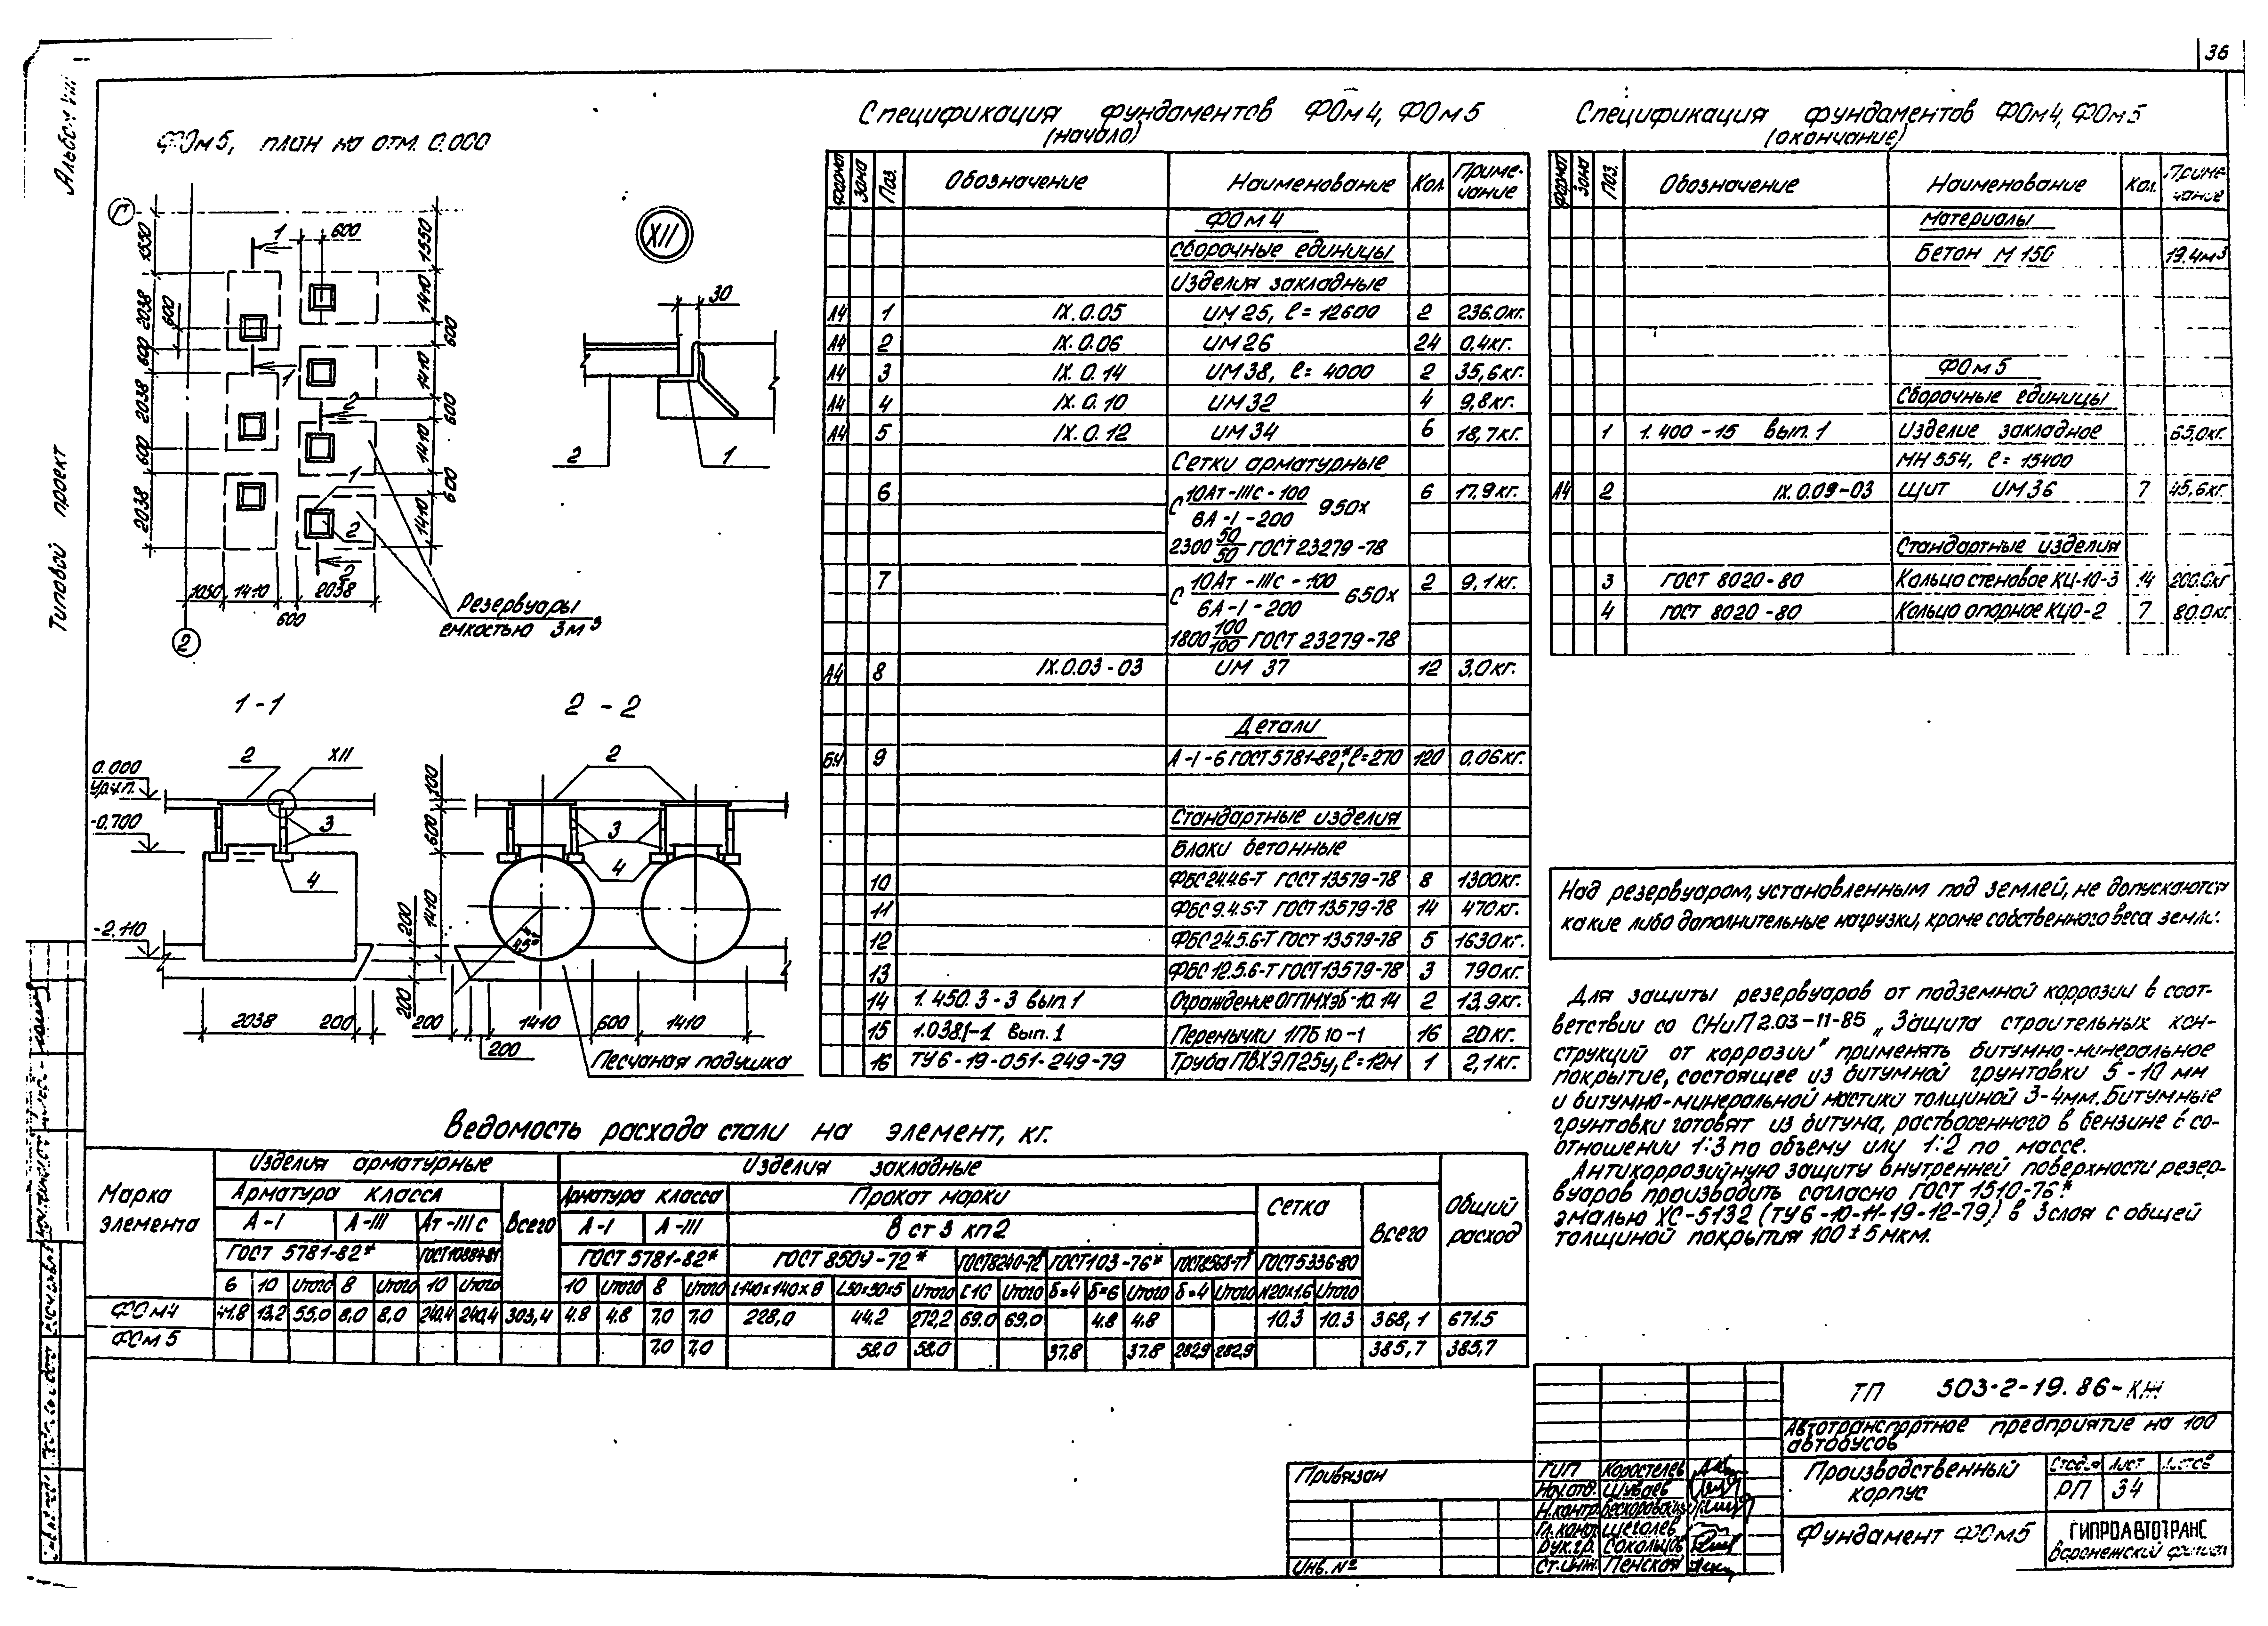 36
Альбом VIII
Типовой проект
ФОм5, план на отм. 0.000
Г
1
600
1550
1550
2038
600
1410
600
2038
1410
600
2038
1410
600
1410
1
2
1
2
2
1050
1410
2038
600
Резервуары
емкостью 3м³
2
XII
30
2
1
1-1
2-2
2
XII
2
0.000
Ур.ч.п.
-0.700
-2.110
3
4
3
4
100
600
1410
200
200
45°
2038
200
200
1410
600
1410
200
Песчаная подушка
Спецификация фундаментов ФОм4, ФОм5
(начало)
Формат
Зона
Поз.
Обозначение
Наименование
Кол.
Примечание
ФОм4
Сборочные единицы
Изделия закладные
А4 1 IX.0.05 ИМ25, ℓ=12600 2 236.0кг.
А4 2 IX.0.06 ИМ26 24 0,4кг.
А4 3 IX.0.14 ИМ38, ℓ=4000 2 35,6кг.
А4 4 IX.0.10 ИМ32 4 9,8кг.
А4 5 IX.0.12 ИМ34 6 18,7кг.
Сетки арматурные
6 С 10Ат-IIIс-100 950х 6 17.9кг.
6А-I-200
2300 50/50 ГОСТ 23279-78
7 С 10Ат-IIIс-100 650х 2 9,1кг.
6А-I-200
1800 100/100 ГОСТ 23279-78
А4 8 IX.0.03-03 ИМ 37 12 3,0кг.
Детали
БЧ 9 А-I-6 ГОСТ 5781-82*, ℓ=270 120 0,06кг.
Стандартные изделия
Блоки бетонные
10 ФБС24.4.6-Т ГОСТ 13579-78 8 1300кг.
11 ФБС 9.4.5-Т ГОСТ 13579-78 14 470кг.
12 ФБС24.5.6-Т ГОСТ 13579-78 5 1630кг.
13 ФБС 12.5.6-Т ГОСТ 13579-78 3 790кг.
14 1.450.3-3 вып.1 Ограждение ОГПМХЭб-10.14 2 13,9кг.
15 1.038.1-1 вып.1 Перемычки 1ПБ10-1 16 20кг.
16 ТУ6-19-051-249-79 Труба ПВХЭП25у, ℓ=12м 1 2,1кг.
Спецификация фундаментов ФОм4, ФОм5
(окончание)
Формат
Зона
Поз.
Обозначение
Наименование
Кол.
Примечание
Материалы
Бетон М 150 19.4м³
ФОм5
Сборочные единицы
1 1.400-15 вып.1 Изделие закладное 65,0кг.
МН 554, ℓ=15400
А4 2 IX.0.09-03 Щит ИМ36 7 45,6кг.
Стандартные изделия
3 ГОСТ 8020-80 Кольцо стеновое КЦ-10-3 14 200.0кг
4 ГОСТ 8020-80 Кольцо опорное КЦО-2 7 80.0кг.
Над резервуаром, установленным под землей, не допускаются
какие либо дополнительные нагрузки, кроме собственного веса земли.
Для защиты резервуаров от подземной коррозии в соот-
ветствии со СНиП 2.03-11-85 „Защита строительных кон-
струкций от коррозии" применять битумно-минеральное
покрытие, состоящее из битумной грунтовки 5-10 мм
и битумно-минеральной мастики толщиной 3-4мм. Битумные
грунтовки готовят из битума, растворенного в бензине в со-
отношении 1:3 по объему или 1:2 по массе.
Антикоррозийную защиту внутренней поверхности резер-
вуаров производить согласно ГОСТ 1510-76*
эмалью ХС-5132 (ТУ6-10-11-19-12-79) в 3слоя с общей
толщиной покрытия 100±5мкм.
Ведомость расхода стали на элемент, кг.
Марка элемента
Изделия арматурные
Изделия закладные
Общий расход
Арматура класса
Всего
Арматура класса
Прокат марки
Сетка
Всего
А-I А-III Ат-IIIс А-I А-III В ст 3 кп2
ГОСТ 5781-82* ГОСТ10884-81 ГОСТ 5781-82* ГОСТ 8509-72* ГОСТ8240-72* ГОСТ103-76* ГОСТ8568-77* ГОСТ5336-80
6 10 Итого 8 Итого 10 Итого 10 Итого 8 Итого L140х140х8 L50х50х5 Итого С10 Итого δ=4 δ=6 Итого δ=4 Итого N20х1.6 Итого
ФОм4 41.8 13,2 55,0 8,0 8,0 240,4 240,4 303,4 4.8 4.8 7,0 7,0 228,0 44.2 272,2 69.0 69,0 4.8 4.8 10.3 10.3 368,1 671.5
ФОм5 7,0 7,0 58.0 58,0 37,8 37.8 282,9 282,9 385,7 385,7
ТП 503-2-19.86-КЖ
Автотранспортное предприятие на 100
автобусов
Привязан
Инв.№
ГИП Коростелев
Нач.отд. Шуваев
Н.контр.
Гл.констр. Щеголев
Рук.гр. Сокольцов
Ст.инж. Пенская
Производственный
корпус
Стадия Лист Листов
РП 34
Фундамент ФОм5
ГИПРОАВТОТРАНС
Воронежский филиал